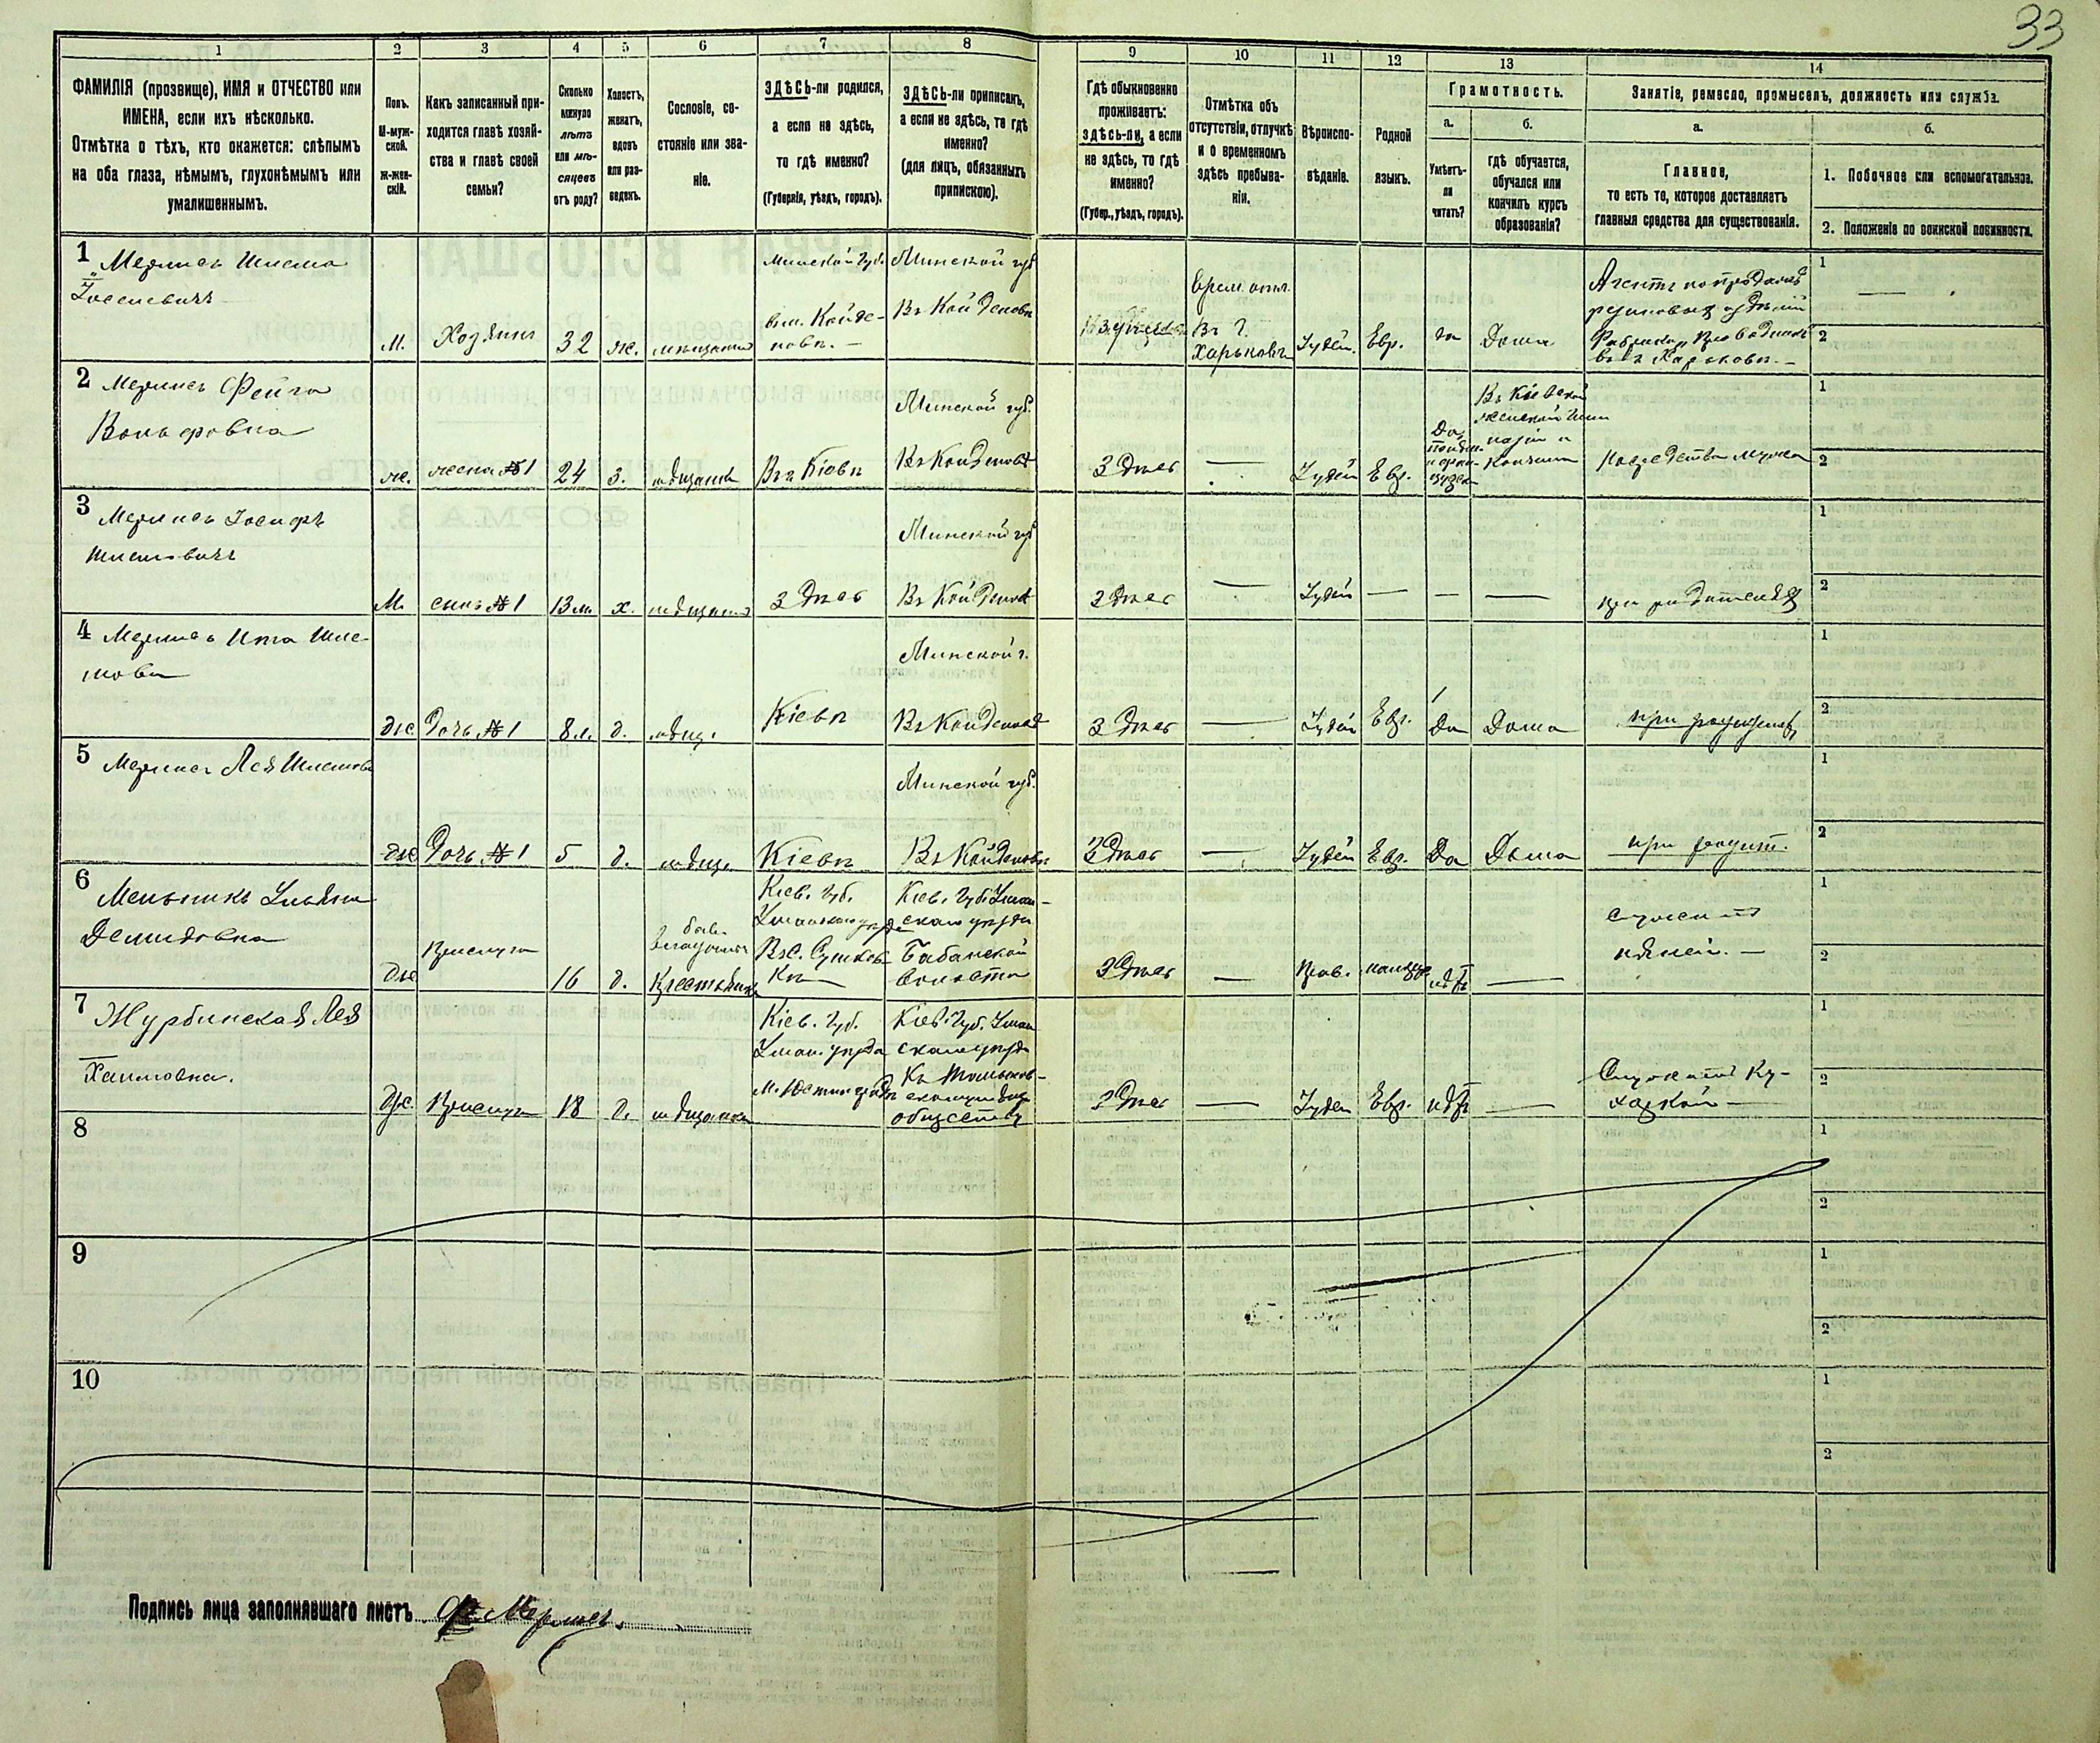 33
1 2 3 4 5 6 7 8 9 10 11 12 13 14
ФАМИЛІЯ (прозвище), ИМЯ и ОТЧЕСТВО или
ИМЕНА, если ихъ нѣсколько.
Отмѣтка о тѣхъ, кто окажется: слѣпымъ
на оба глаза, нѣмымъ, глухонѣмымъ или
умалишеннымъ.
Полъ.
М-муж-
ской.
Ж-жен-
скій.
Какъ записанный при-
ходится главѣ хозяй-
ства и главѣ своей
семьи?
Сколько
минуло
лѣтъ
или мѣ-
сяцевъ
отъ роду?
Холостъ,
женатъ,
вдовъ
или раз-
веденъ.
Сословіе, со-
стояніе или зва-
ніе.
ЗДѢСЬ-ли родился,
а если не здѣсь,
то гдѣ именно?
(Губернія, уѣздъ, городъ).
ЗДѢСЬ-ли приписанъ,
а если не здѣсь, то гдѣ
именно?
(для лицъ, обязанныхъ
припискою).
Гдѣ обыкновенно
проживаетъ:
здѣсь-ли, а если
не здѣсь, то гдѣ
именно?
(Губер., уѣздъ, городъ).
Отмѣтка объ
отсутствіи, отлучкѣ
и о временномъ
здѣсь пребыва-
ніи.
Вѣроиспо-
вѣданіе.
Родной
языкъ.
Грамотность.
а.
Умѣетъ-
ли
читать?
б.
гдѣ обучается,
обучался или
кончилъ курсъ
образованія?
Занятіе, ремесло, промыселъ, должность или служба.
а.
Главное,
то есть то, которое доставляетъ
главныя средства для существованія.
б.
1. Побочное или вспомогательное.
2. Положеніе по воинской повинности.
1 Мерлисъ Шлема
М. Хозяинъ 32 ж.
Минской губ.
Минской губ
Въ Койденовѣ
Врем. отл.
Въ г.
Харьковъ
Іудей. Евр. да Дома
Агентъ по продажѣ
въ г. Харьковѣ.
1
2
2 Мерлисъ Фейга
Вольфовна
ж. жена №1 24 з. мѣщанка Въ г. Кіевѣ
Минской губ.
Здѣсь — Іудей Евр.
Да,
Въ Кіевской
женской гим
назіи
На средства мужа
1
2
3 Мерлисъ Іосифъ
Шлемовичъ
М. сынъ №1 13 м. х. Здѣсь
Минской губ
Здѣсь — Іудей — — —
при родителяхъ
1
2
4 Мерлисъ Ита Шле-
мовн
же Дочь №1 8 л. д. мѣщ. Кіевѣ
Минской г.
Здѣсь — Іудей Евр. Да Дома
1
2
5 Мерлисъ Лея Шлемовн
же Дочь №1 5 д. мѣщ. Кіевѣ
Минской губ.
Въ Койденовѣ
Здѣсь — Іудей Евр. Да Дома
при родит.
1
2
6 Мельникъ Ульяна
Демидовна
же Прислуга 16 д.
Крестьянка
Кіев. губ.
Кіев. губ. Уман-
скаго уѣзда
Бабанской
волости
Здѣсь — Прав. нѣтъ —
Служитъ
няней. —
1
2
7 Журбинская Лея
Хаимовна.
же Прислуга 18 д. мѣщанка
Кіев. губ.
Уман. уѣзда
Кіев. губ. Уман
скаго уѣзда
обществу
Здѣсь — Іудей Евр. нѣтъ —
Служитъ ку-
харкой —
1
2
8
1
2
9
1
2
10
1
2
Подпись лица заполнявшаго листъ Мерлисъ.